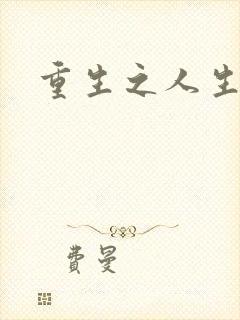 重生之人生
费曼